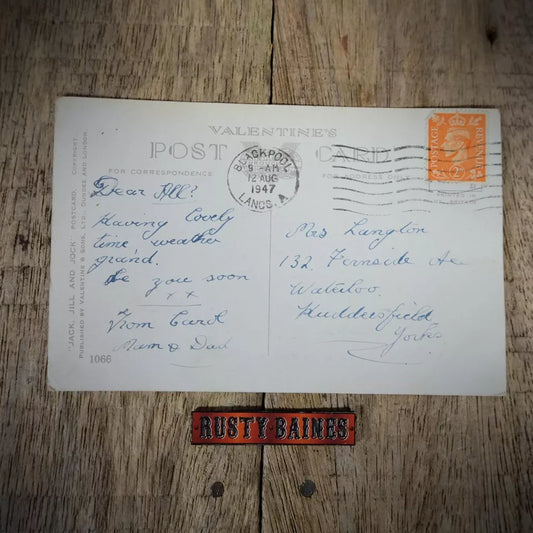 VALENTINE'S
POST CARD
FOR CORRESPONDENCE
FOR ADDRESS ONLY
"JACK, JILL AND JOCK" POSTCARD. COPYRIGHT.
PUBLISHED BY VALENTINE & SONS, LTD., DUNDEE AND LONDON.
1066
BLACKPOOL
9 - AM
12 AUG
1947
LANCS. A
POSTAGE
REVENUE
2D
Dear All
Having lovely
time, weather
grand,
you soon
x x
From Carol
Mum & Dad
Mrs Langton
132, Fernside Ave
Waterloo
Huddersfield
Yorks
RUSTY·BAINES